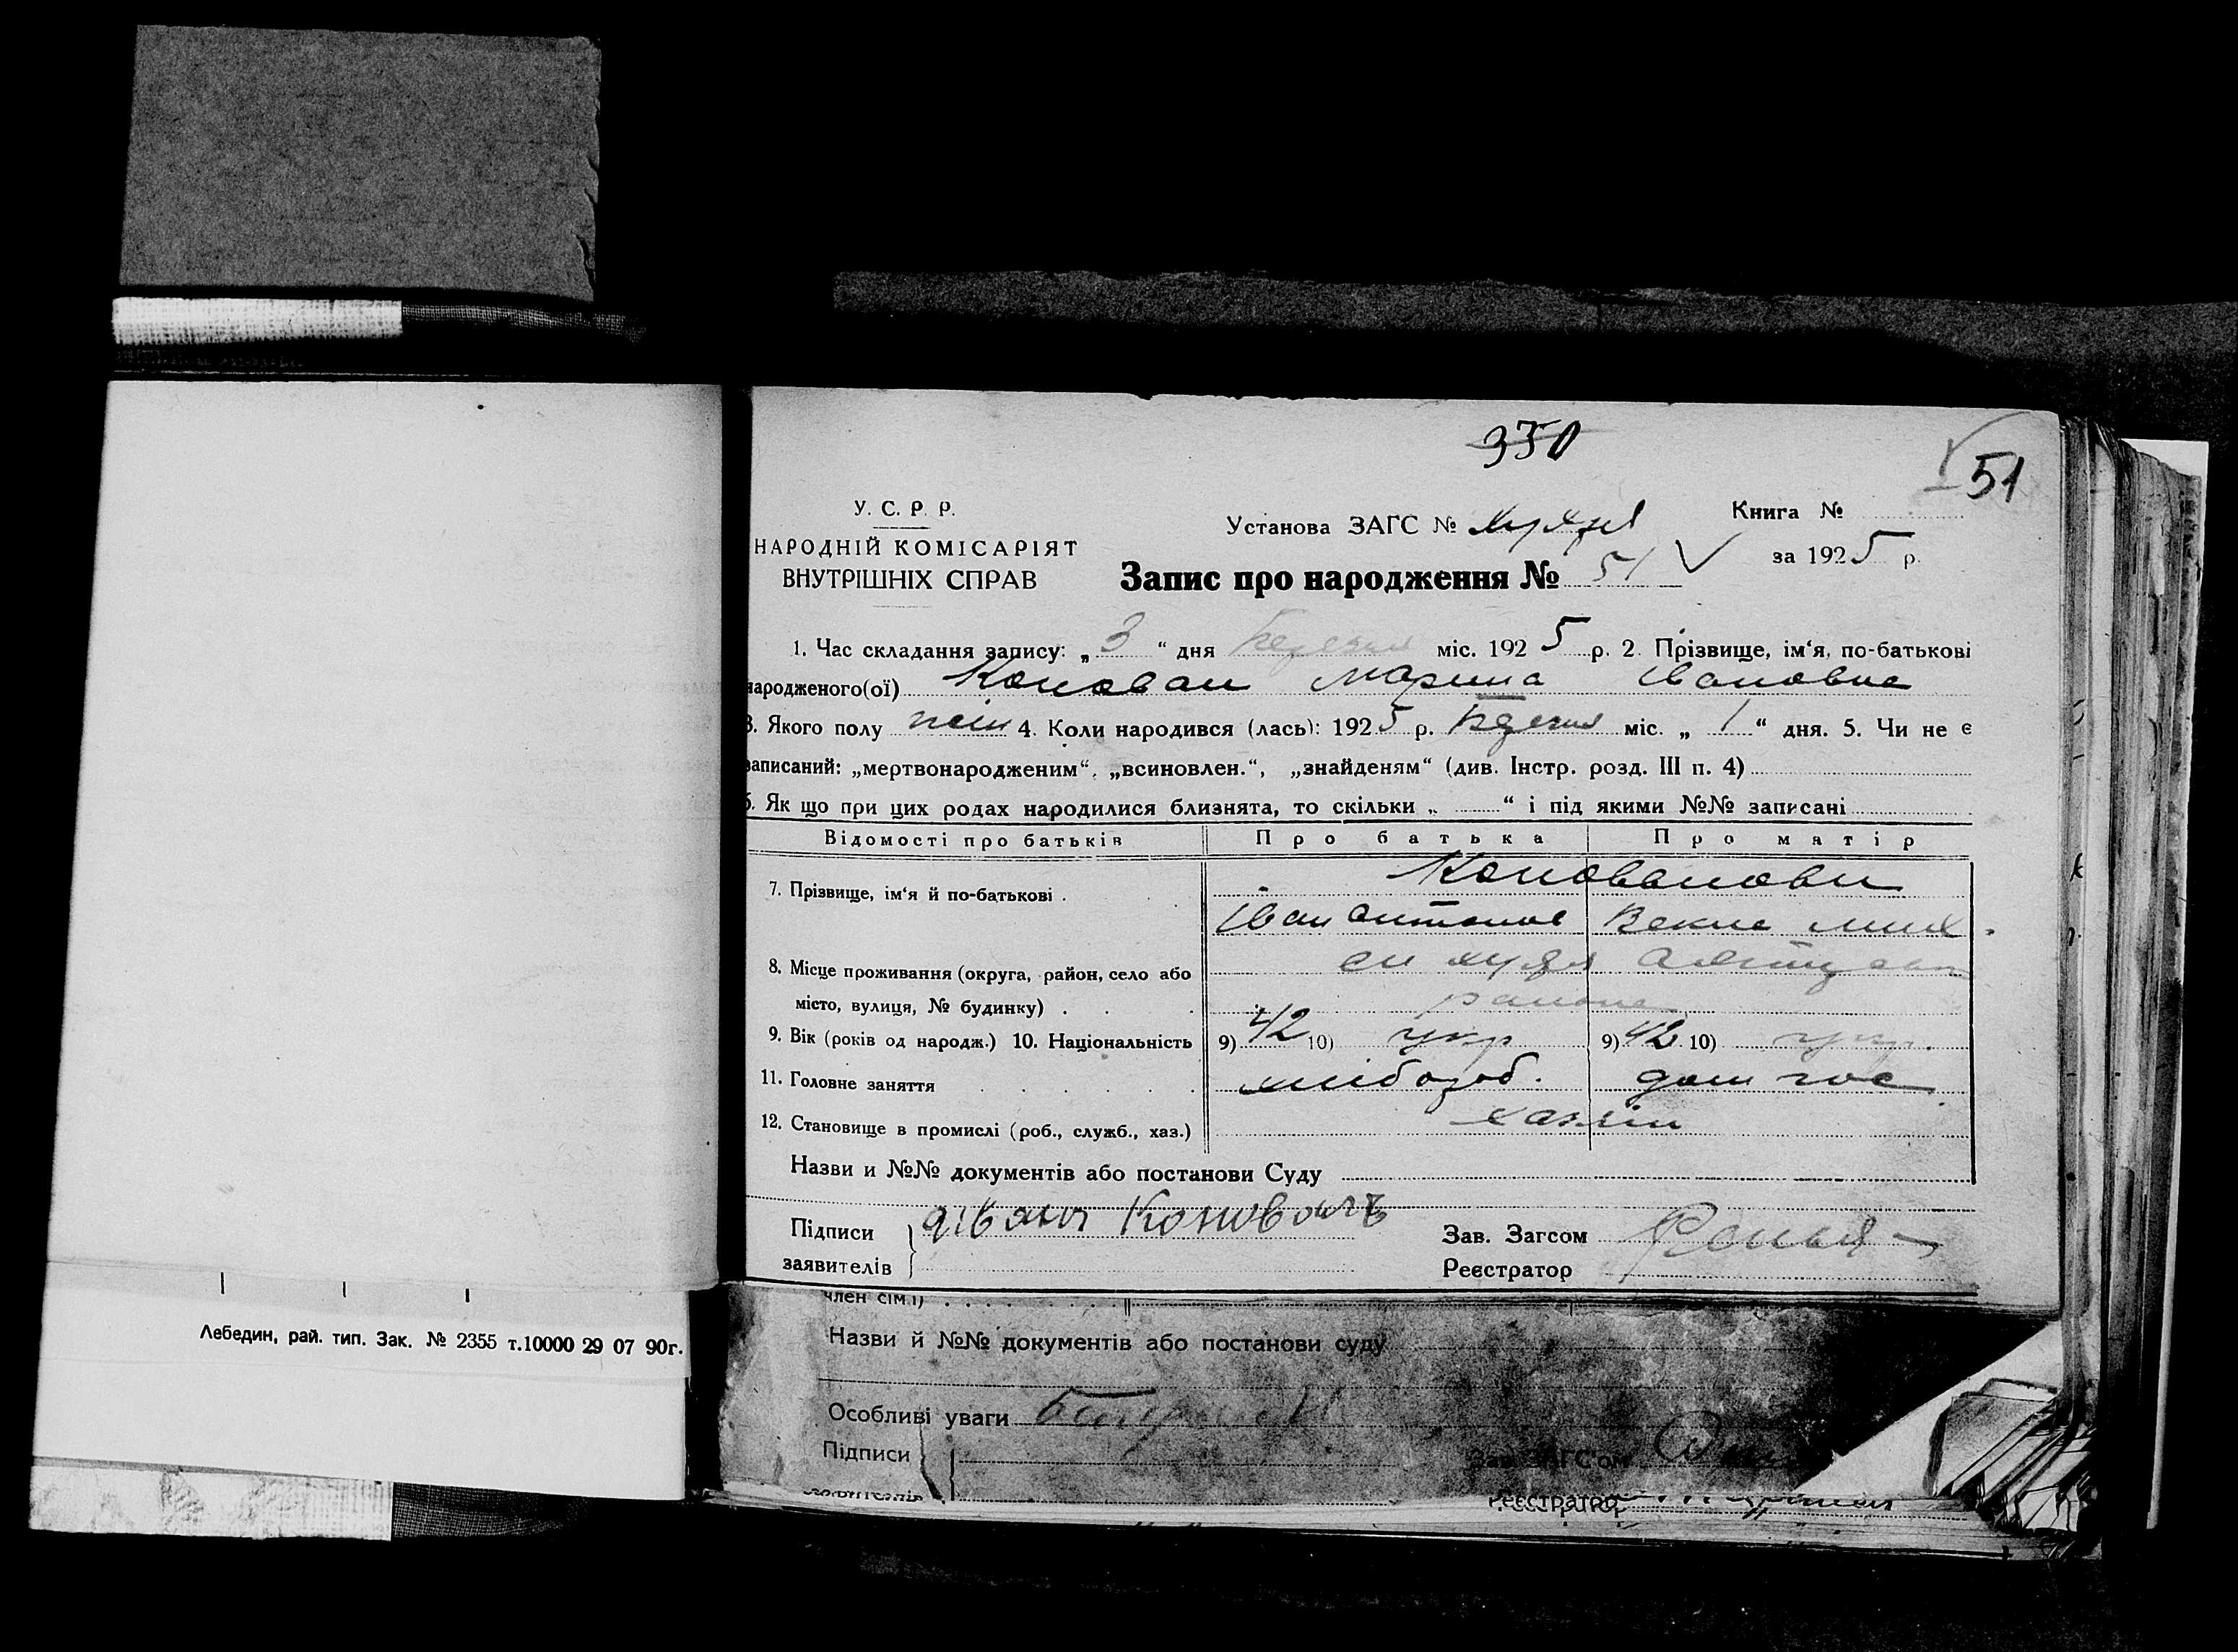 350
51
У. С. Р. Р.
НАРОДНІЙ КОМІСАРІЯТ
ВНУТРІШНІХ СПРАВ
Установа ЗАГС №
Книга №
за 1925 р.
Запис про народження № 51
1. Час складання запису: „ 3 “ дня Березня міс. 1925 р. 2. Прізвище, ім‘я, по-батькові
народженого(ої) Конован Марина Івановна
3. Якого полу жін 4. Коли народився (лась): 1925 р. Березня міс. „ 1 “ дня. 5. Чи не є
записаний: „мертвонародженим“, „всиновлен.“, „знайденям“ (див. Інстр. розд. III п. 4)
6. Як що при цих родах народилися близнята, то скільки „ “ і під якими №№ записані
Відомості про батьків Про батька Про матір
7. Прізвище, ім‘я й по-батькові . Конованови
Іван Антонов Векла Мих
8. Місце проживання (округа, район, село або
місто, вулиця, № будинку) . района
9. Вік (років од народж.) 10. Національність 9) 42 10) укр 9) 42 10) укр.
11. Головне заняття хлібороб. дом гос
12. Становище в промислі (роб., служб., хаз.) хазяїн
Назви и №№ документів або постанови Суду
Підписи заявителів Іванъ Конованъ
Зав. Загсом
Реєстратор
член сім'ї)
Лебедин, рай. тип. Зак. № 2355 т.10000 29 07 90г.
Назви й №№ документів або постанови суду
Особливі уваги
Підписи
заявителів
Зав. ЗАГС'ом
Реєстратор